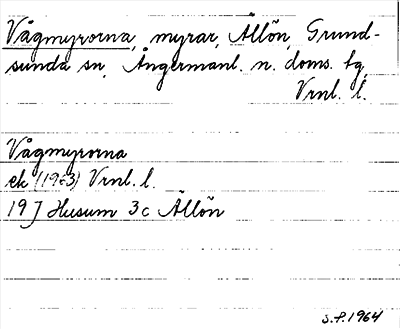 Vågmyrorna, myrar, Ällön, Grund-
sunda sn, Ångermanl. n. doms. tg,
Vrnl. l.
Vågmyrorna
ek (1963) Vrnl. l.
19 J Husum 3c Ällön
S.P. 1964